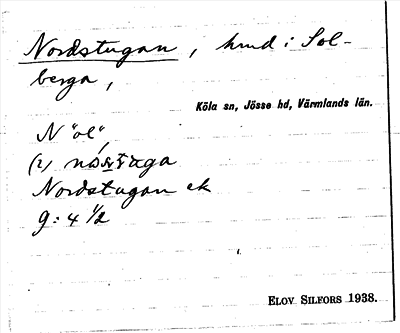 Nordstugan, hmd i Sol-
berga,
Köla sn, Jösse hd, Värmlands län.
N "ol"
(2)
Nordstugan ek
g: 4 1/2
ELOV SILFORS 1938.